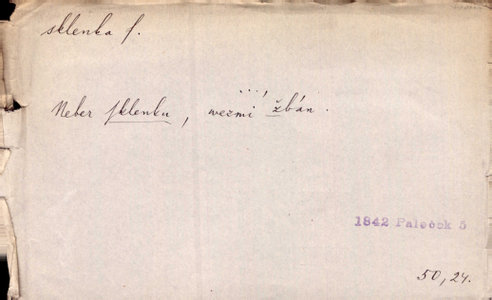 sklenka f.
Neber sklenku, wezmi žbán.
1842 Paleček 5
50, 24.